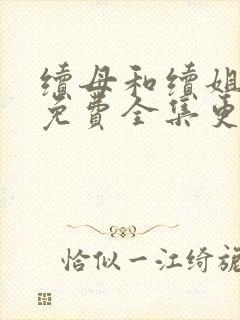 续母和续姐
免费全集更
恰似一江绮旎